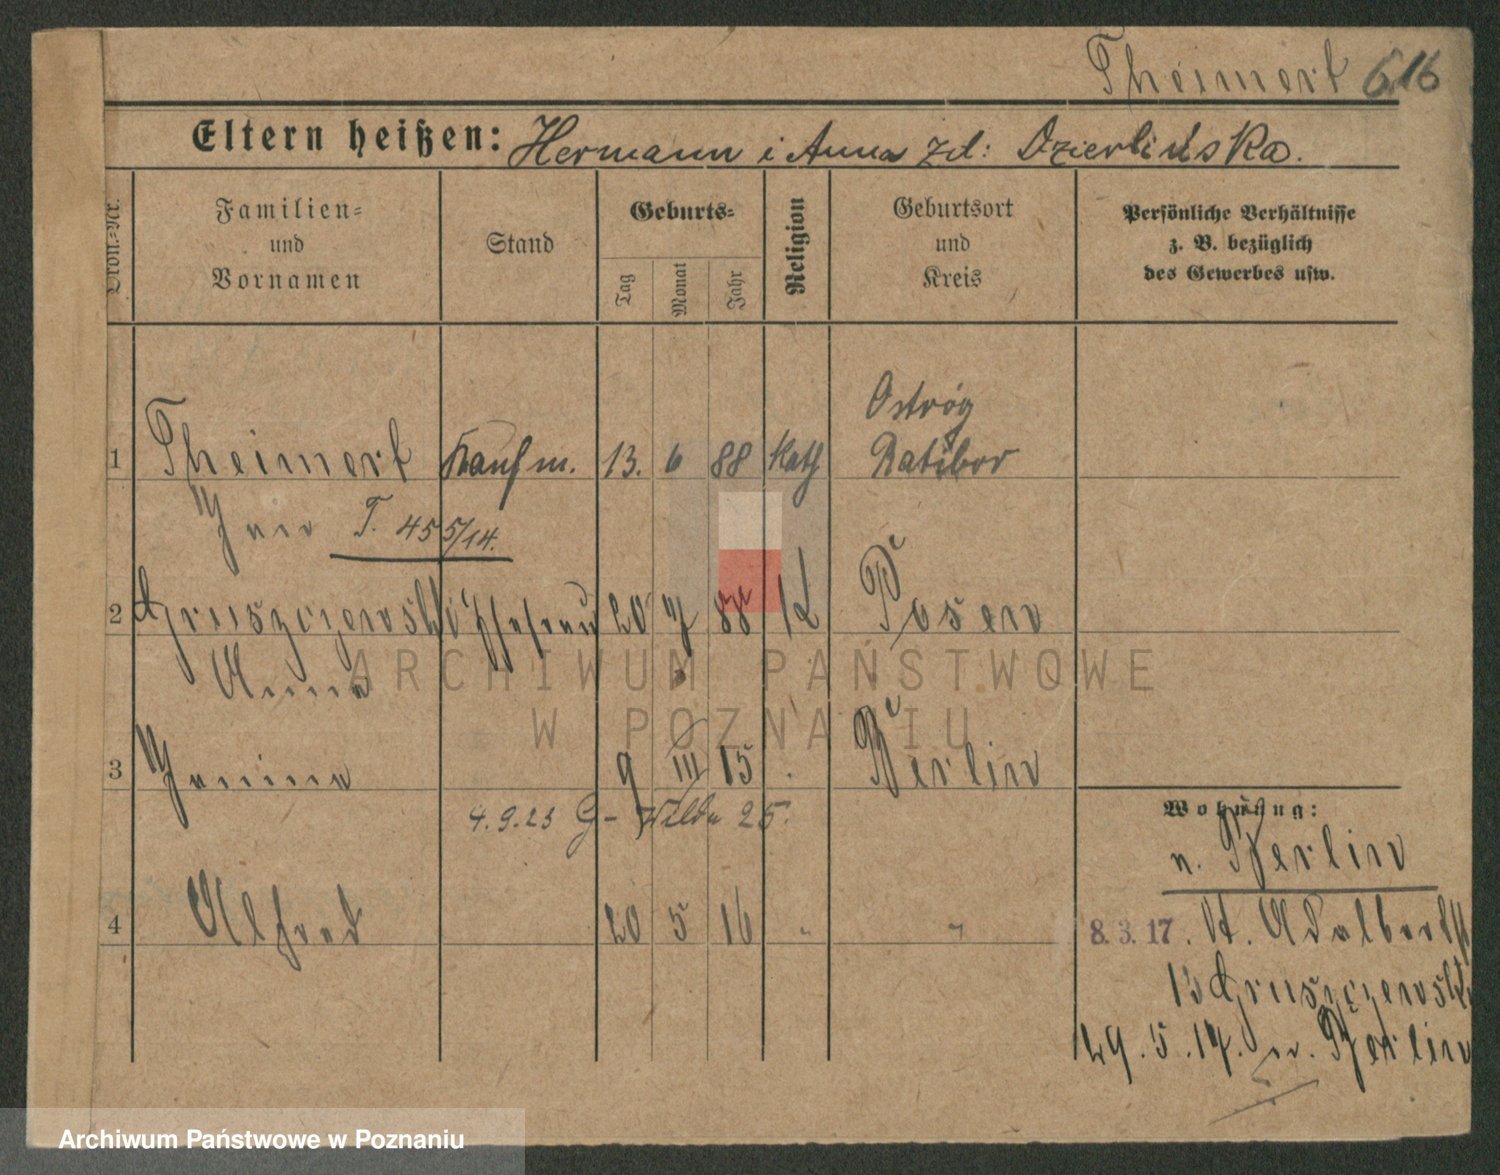 Theimert 616
Eltern heißen: Hermann i Anna zd: Dzierlińska.
Ordn.-Nr.
Familien- und Vornamen
Stand
Geburts-
Tag
Monat
Jahr
Religion
Geburtsort und Kreis
Persönliche Verhältnisse z. B. bezüglich des Gewerbes usw.
Ostróg
1 Theimert Kaufm. 13. 6 88 Kath Ratibor
T. 455/14.
2 Gruszczewski Ehefrau 20 88 K Posen
Anna
3 Janina 9 III 15 Berlin
4.9.23 G- Wilda 25.
Wohnung:
n. Berlin
4 Alfred 20 5 16 " "
8.3.17. St. Adalbertst
13 Gruszczewski
29.5.17. n. Berlin
ARCHIWUM PAŃSTWOWE
W POZNANIU
Archiwum Państwowe w Poznaniu